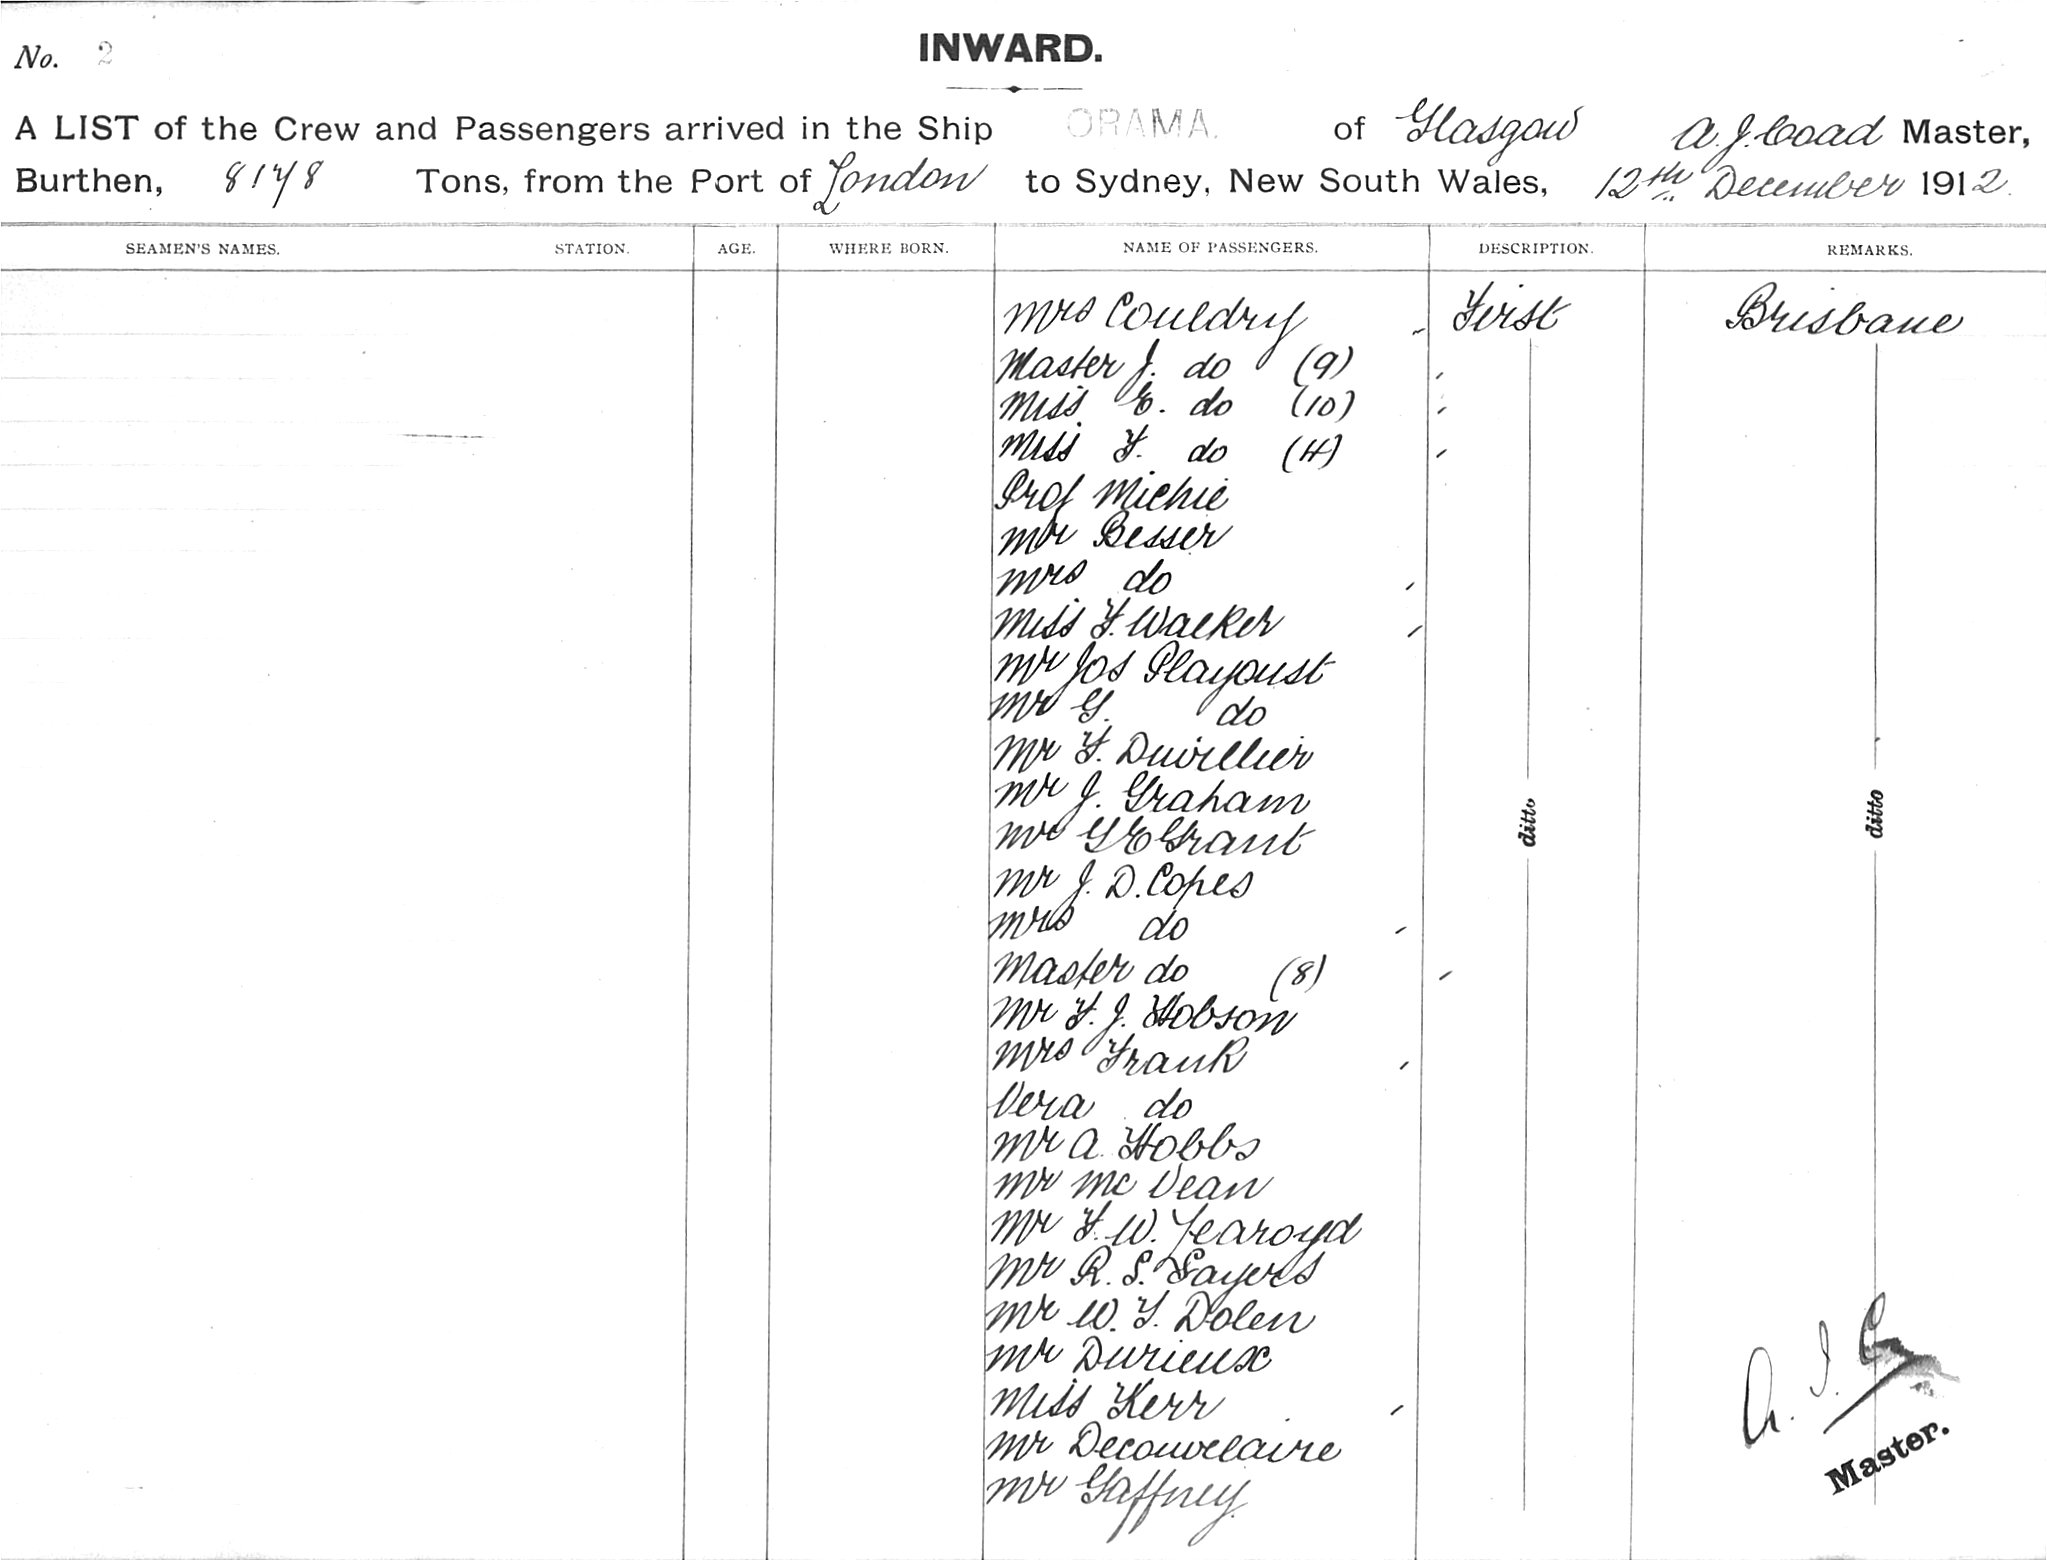 No. 2
INWARD.
A LIST of the Crew and Passengers arrived in the Ship ORAMA. of Glasgow A. J. Coad Master,
Burthen, 8178 Tons, from the Port of London to Sydney, New South Wales, 12th December 1912.
SEAMEN'S NAMES. STATION. AGE. WHERE BORN. NAME OF PASSENGERS. DESCRIPTION. REMARKS.
Mrs Couldry First Brisbane
Master J. do (9)
Miss E. do (10)
Miss F. do (4)
Prof Michie
Mr Besser
Mrs do
Miss F. Walker
Mr Jos Playoust
Mr G. do
Mr F. Duvillier
Mr J. Graham
Mr G E Grant ditto ditto
Mr J. D. Copes
Mrs do
Master do (8)
Mr F. J. Hobson
Mrs Frank
Vera do
Mr A. Hobbs
Mr Mc Vean
Mr F. W. Yearoyd
Mr R. S. Sayers
Mr W. F. Dolen
Mr Durieux
Miss Kerr
Mr Decouvelaire
Mr Gaffney
A. J.
Master.